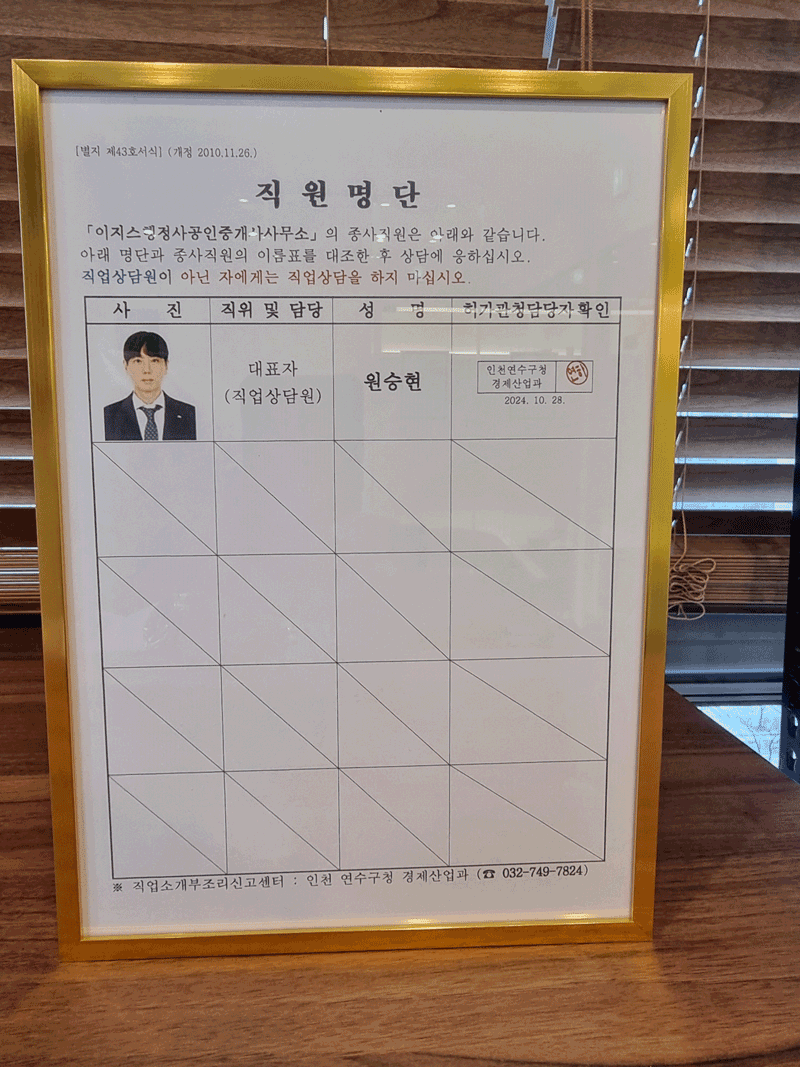 [별지 제43호서식] (개정 2010.11.26.)
직 원 명 단
「이지스행정사공인중개사사무소」의 종사직원은 아래와 같습니다.
아래 명단과 종사직원의 이름표를 대조한 후 상담에 응하십시오.
직업상담원이 아닌 자에게는 직업상담을 하지 마십시오.
사 진 직위 및 담당 성 명 허가관청담당자확인
대표자
(직업상담원)
원승현
인천연수구청
경제산업과
2024. 10. 28.
※ 직업소개부조리신고센터 : 인천 연수구청 경제산업과 (☎ 032-749-7824)